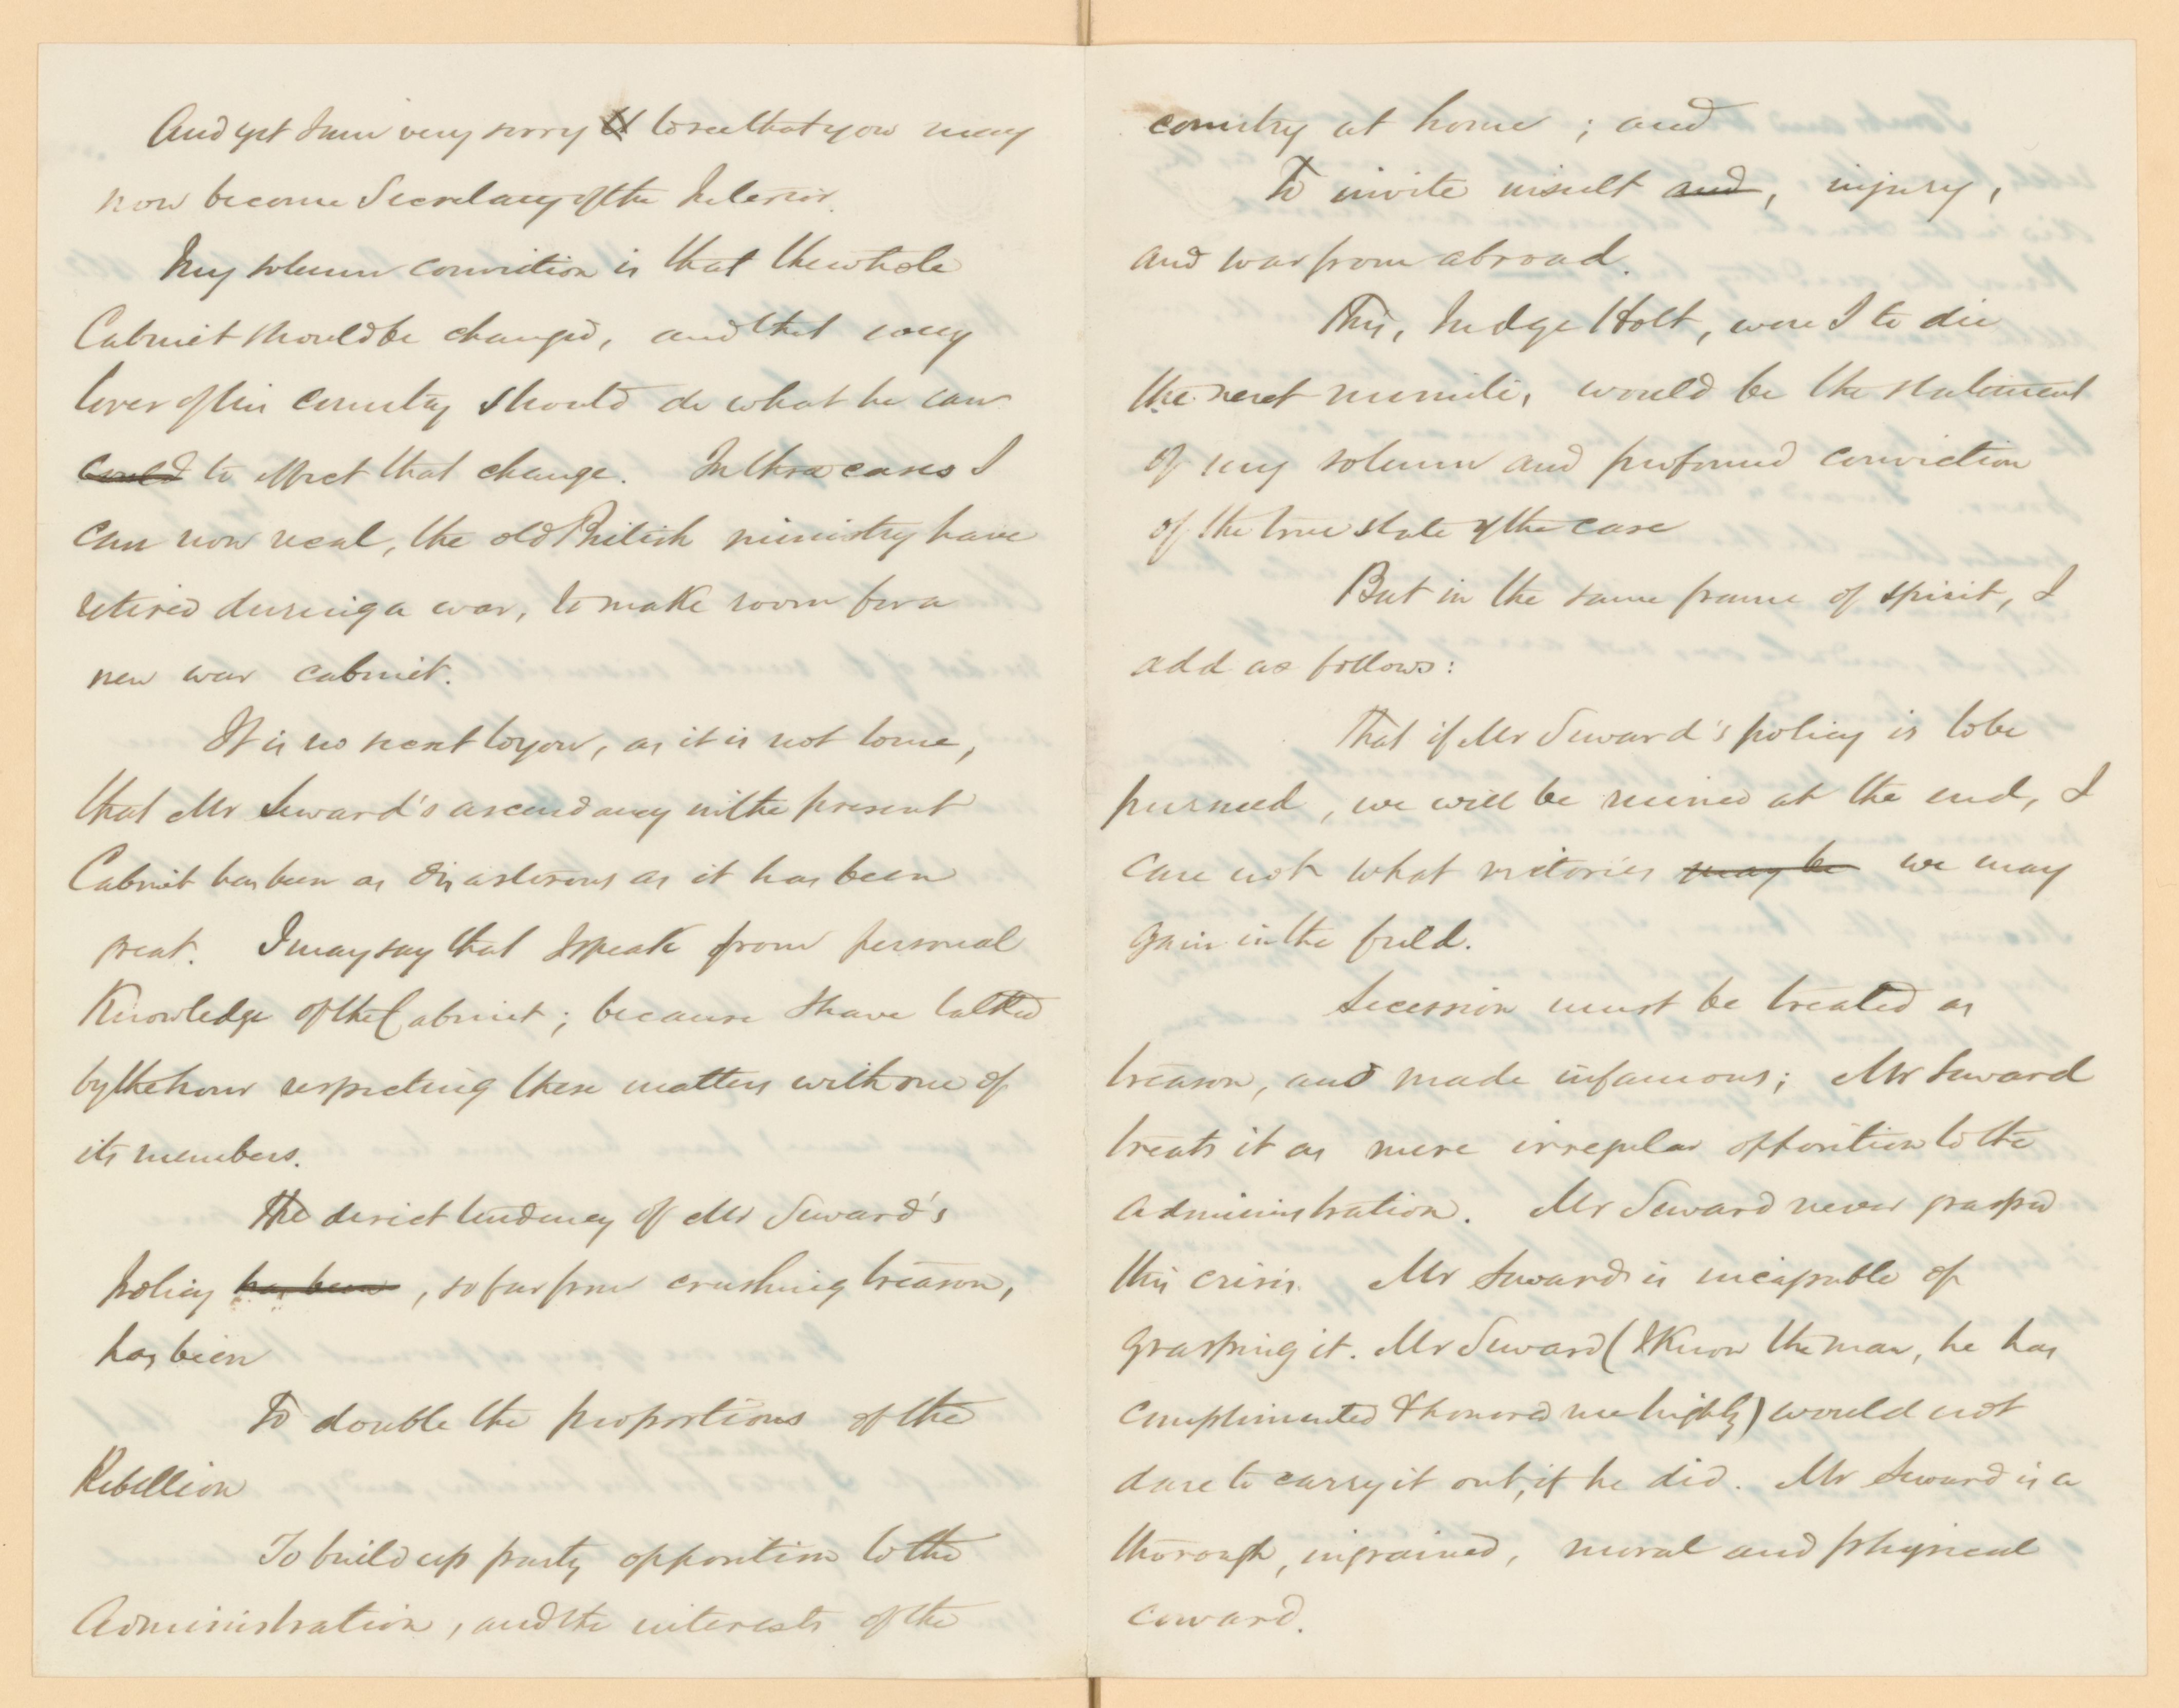 And yet I am very sorry to see that you may
now become Secretary of the Interior.
My solemn conviction is that the whole
Cabinet should be changed, and that every
lover of his country should do what he can
could to effect that change. In three cases I
can now recal, the old British ministry have
retired during a war, to make room for a
new war cabinet.
It is no secret to you, as it is not to me,
that Mr Seward's ascendancy in the present
Cabinet has been as disasterous as it has been
great. I may say that I speak from personal
Knowledge of the Cabinet; because I have talked
by the hour respecting these matters with one of
its members.
The direct tendency of Mr Seward's
policy has been, so far from crushing treason,
has been
To double the proportions of the
Rebellion
To build up party opposition to the
Administration, and the interests of the
country at home; and
To invite insult and, injury,
and war from abroad.
This, Judge Holt, were I to die
the next minute, would be the statement
of my solemn and profound conviction
of the true state of the case
But in the same frame of spirit, I
add as follows:
That if Mr Seward's policy is to be
pursued, we will be ruined at the end, I
care not what victories may be we may
gain in the field.
Secession must be treated as
treason, and made infamous; Mr Seward
treats it as mere irregular opposition to the
administration. Mr Seward never grasped
this crisis. Mr Seward is incapable of
grasping it. Mr Seward (I Know the man, he has
complimented & honored me highly) would not
dare to carry it out, if he did. Mr Seward is a
thorough, ingrained, moral and physical
coward.